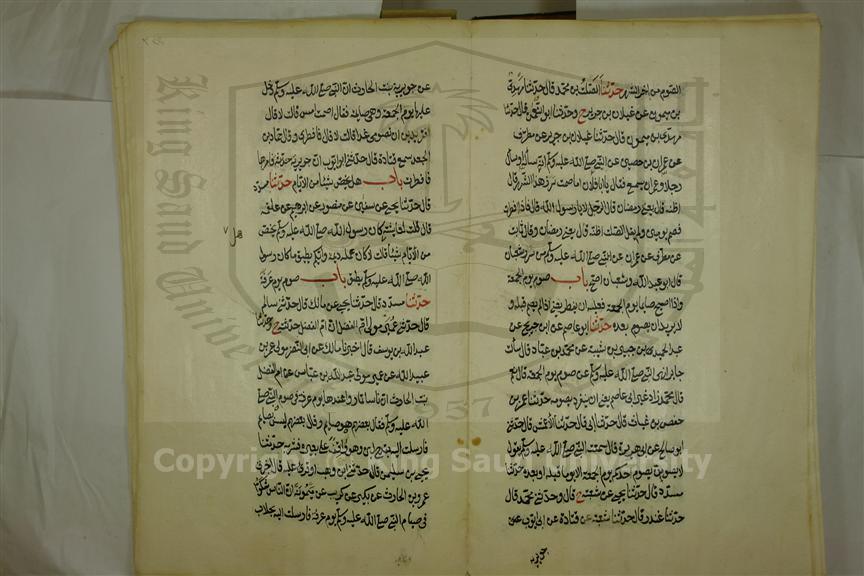 الصوم من اخر الشهر حدثنا الصلت بن محمد قال حدثنا مهدي
بن ميمون عن غيلان بن جرير ح وحدثنا ابو النعمن قال حدثنا
مهدى بن ميمون قال حدثنا غيلان بن جرير عن مطرف
عن عمران بن حصين عن النبي صلى الله عليه وسلم انه سأله او سأل
رجلا وعمران يسمع فقال يا با فلان اما صمت سرر هذا الشهر قال
اظنه قال يعنى رمضان قال الرجل لا يا رسول الله قال فاذا افطرت
فصم يومين ولم يقل الصلت اظنه قال يعنى رمضان وقال ثابت
عن مطرف عن عمران عن النبي صلى الله عليه وسلم من سرر شعبان
قال ابو عبد الله وشعبان اصح باب صوم يوم الجمعة
واذا اصبح صايما يوم الجمعة فعليه ان يفطر يعنى اذا لم يصم قبله ولا
لا يريد ان يصوم بعده حدثنا ابو عاصم عن ابن جريج عن
عبد الحميد بن جبير بن شيبة عن محمد بن عباد قال سألت
جابرا نهى النبي صلى الله عليه وسلم عن صوم يوم الجمعة قال نعم
قال محمد زاد غير ابى عاصم يعنى ان ينفرد بصومه حدثنا عمر بن
حفص بن غياث قال حدثنا ابى قال حدثنا الاعمش قال حدثنى
ابو صالح عن ابى هريرة قال سمعت النبي صلى الله عليه وسلم يقول
لا يصومن احدكم يوم الجمعة الا يوما قبله او بعده حدثنا
مسدد قال حدثنا يحيى عن شعبة ح قال وحدثنى محمد قال
حدثنا غندر قال حدثنا شعبة عن قتادة عن ابى ايوب عن
جويرية
عن جويرية بنت الحارث ان النبي صلى الله عليه وسلم دخل
عليها يوم الجمعة وهى صايمة فقال اصمت امس قالت لا قال
اتريدين ان تصومى غدا قالت لا قال فافطرى وقال حماد بن
الجعد سمع قتادة قال حدثنى ابو ايوب ان جويرية حدثته فامرها
فافطرت باب هل يخص شيئا من الايام حدثنا مسدد
قال حدثنا يحيى عن سفين عن منصور عن ابرهيم عن علقمة
قال قلت لعايشة هل كان رسول الله صلى الله عليه وسلم يختص
من الايام شيئا قالت لا كان عمله ديمة وايكم يطيق ما كان رسول
الله صلى الله عليه وسلم يطيق باب صوم يوم عرفة
حدثنا مسدد قال حدثنا يحيى عن مالك قال حدثنى سالم
قال حدثنى عمير مولى ام الفضل ان ام الفضل حدثته ح وحدثنا
عبد الله بن يوسف قال اخبرنا مالك عن ابى النضر مولى عمر بن
عبيد الله عن عمير مولى عبد الله بن عباس عن ام الفضل
بنت الحارث ان ناسا تماروا عندها يوم عرفة فى صوم النبي صلى
الله عليه وسلم فقال بعضهم هو صايم وقال بعضهم ليس بصايم
فارسلت اليه بقدح لبن وهو واقف على بعيره فشربه حدثنا
يحيى بن سليمن قال حدثنى ابن وهب او قرئ عليه قال اخبرنى
عمرو بن الحارث عن بكير عن كريب عن ميمونة ان الناس شكوا
فى صيام النبي صلى الله عليه وسلم يوم عرفة فارسلت اليه بحلاب
King Saud University
1957
Copyright © King Saud University